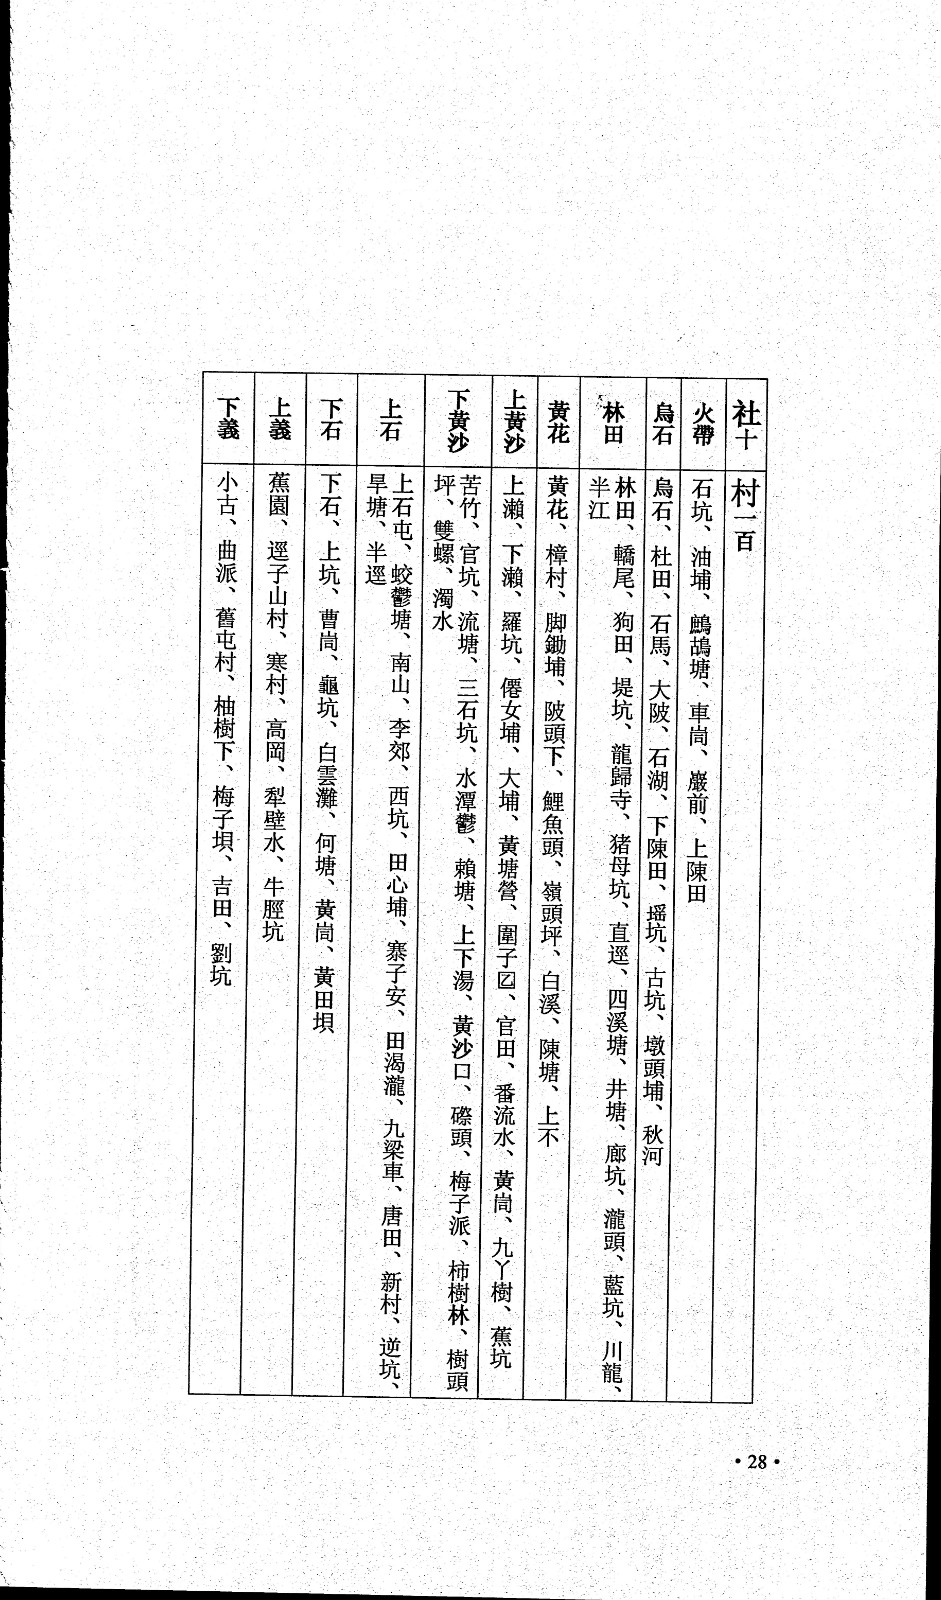 社十
村一百
火帶
石坑、油埔、鷓鴣塘、車崗、巖前、上陳田
烏石
烏石、杜田、石馬、大陂、石湖、下陳田、瑶坑、古坑、墩頭埔、秋河
林田
林田、轎尾、狗田、堤坑、龍歸寺、猪母坑、直逕、四溪塘、井塘、廊坑、瀧頭、藍坑、川龍、
半江
黃花
黃花、樟村、脚鋤埔、陂頭下、鯉魚頭、嶺頭坪、白溪、陳塘、上不
上黃沙
上瀨、下瀨、羅坑、僊女埔、大埔、黃塘營、圍子、官田、番流水、黃崗、九丫樹、蕉坑
下黃沙
苦竹、官坑、流塘、三石坑、水潭鬱、賴塘、上下湯、黃沙口、磜頭、梅子派、柿樹林、樹頭
坪、雙螺、濁水
上石
上石屯、蛟鬱塘、南山、李郊、西坑、田心埔、寨子安、田渴瀧、九梁車、唐田、新村、逆坑、
旱塘、半逕
下石
下石、上坑、曹崗、龜坑、白雲灘、何塘、黃崗、黃田垻
上義
蕉園、逕子山村、寒村、高岡、犁壁水、牛脛坑
下義
小古、曲派、舊屯村、柚樹下、梅子垻、吉田、劉坑
·28·